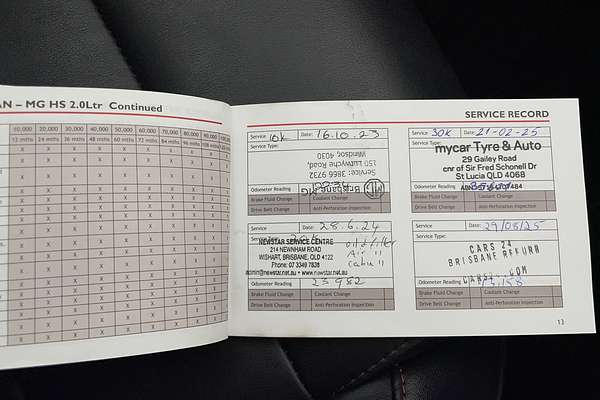 AN – MG HS 2.0Ltr Continued
10,000 20,000 30,000 40,000 50,000 60,000 70,000 80,000 90,000
12 mths 24 mths 36 mths 48 mths 60 mths 72 mths 84 mths 96 mths
SERVICE RECORD
Service 10k Date: 16.10.23
Service Type:
Brisbane MG
Service: 3866 7732
150 Lutwyche Road
Windsor 4030
Odometer Reading
Brake Fluid Change Coolant Change
Drive Belt Change Anti-Perforation Inspection
Service 30K Date: 21-02-25
Service Type:
mycar Tyre & Auto
29 Gailey Road
cnr of Sir Fred Schonell Dr
St Lucia QLD 4068
Odometer Reading
Brake Fluid Change Coolant Change
Drive Belt Change Anti-Perforation Inspection
Service Date: 28.6.24
Service Type: 20K
NEWSTAR SERVICE CENTRE
214 NEWNHAM ROAD
WISHART, BRISBANE, QLD 4122
Phone: 07 3349 7838
admin@newstar.net.au • www.newstar.net.au
oil filter
Air "
Cabin "
Odometer Reading 23982
Brake Fluid Change Coolant Change
Drive Belt Change Anti-Perforation Inspection
Service Date: 29/08/25
Service Type:
CARS 24
BRISBANE REFURB
Odometer Reading
Brake Fluid Change Coolant Change
Drive Belt Change Anti-Perforation Inspection
13